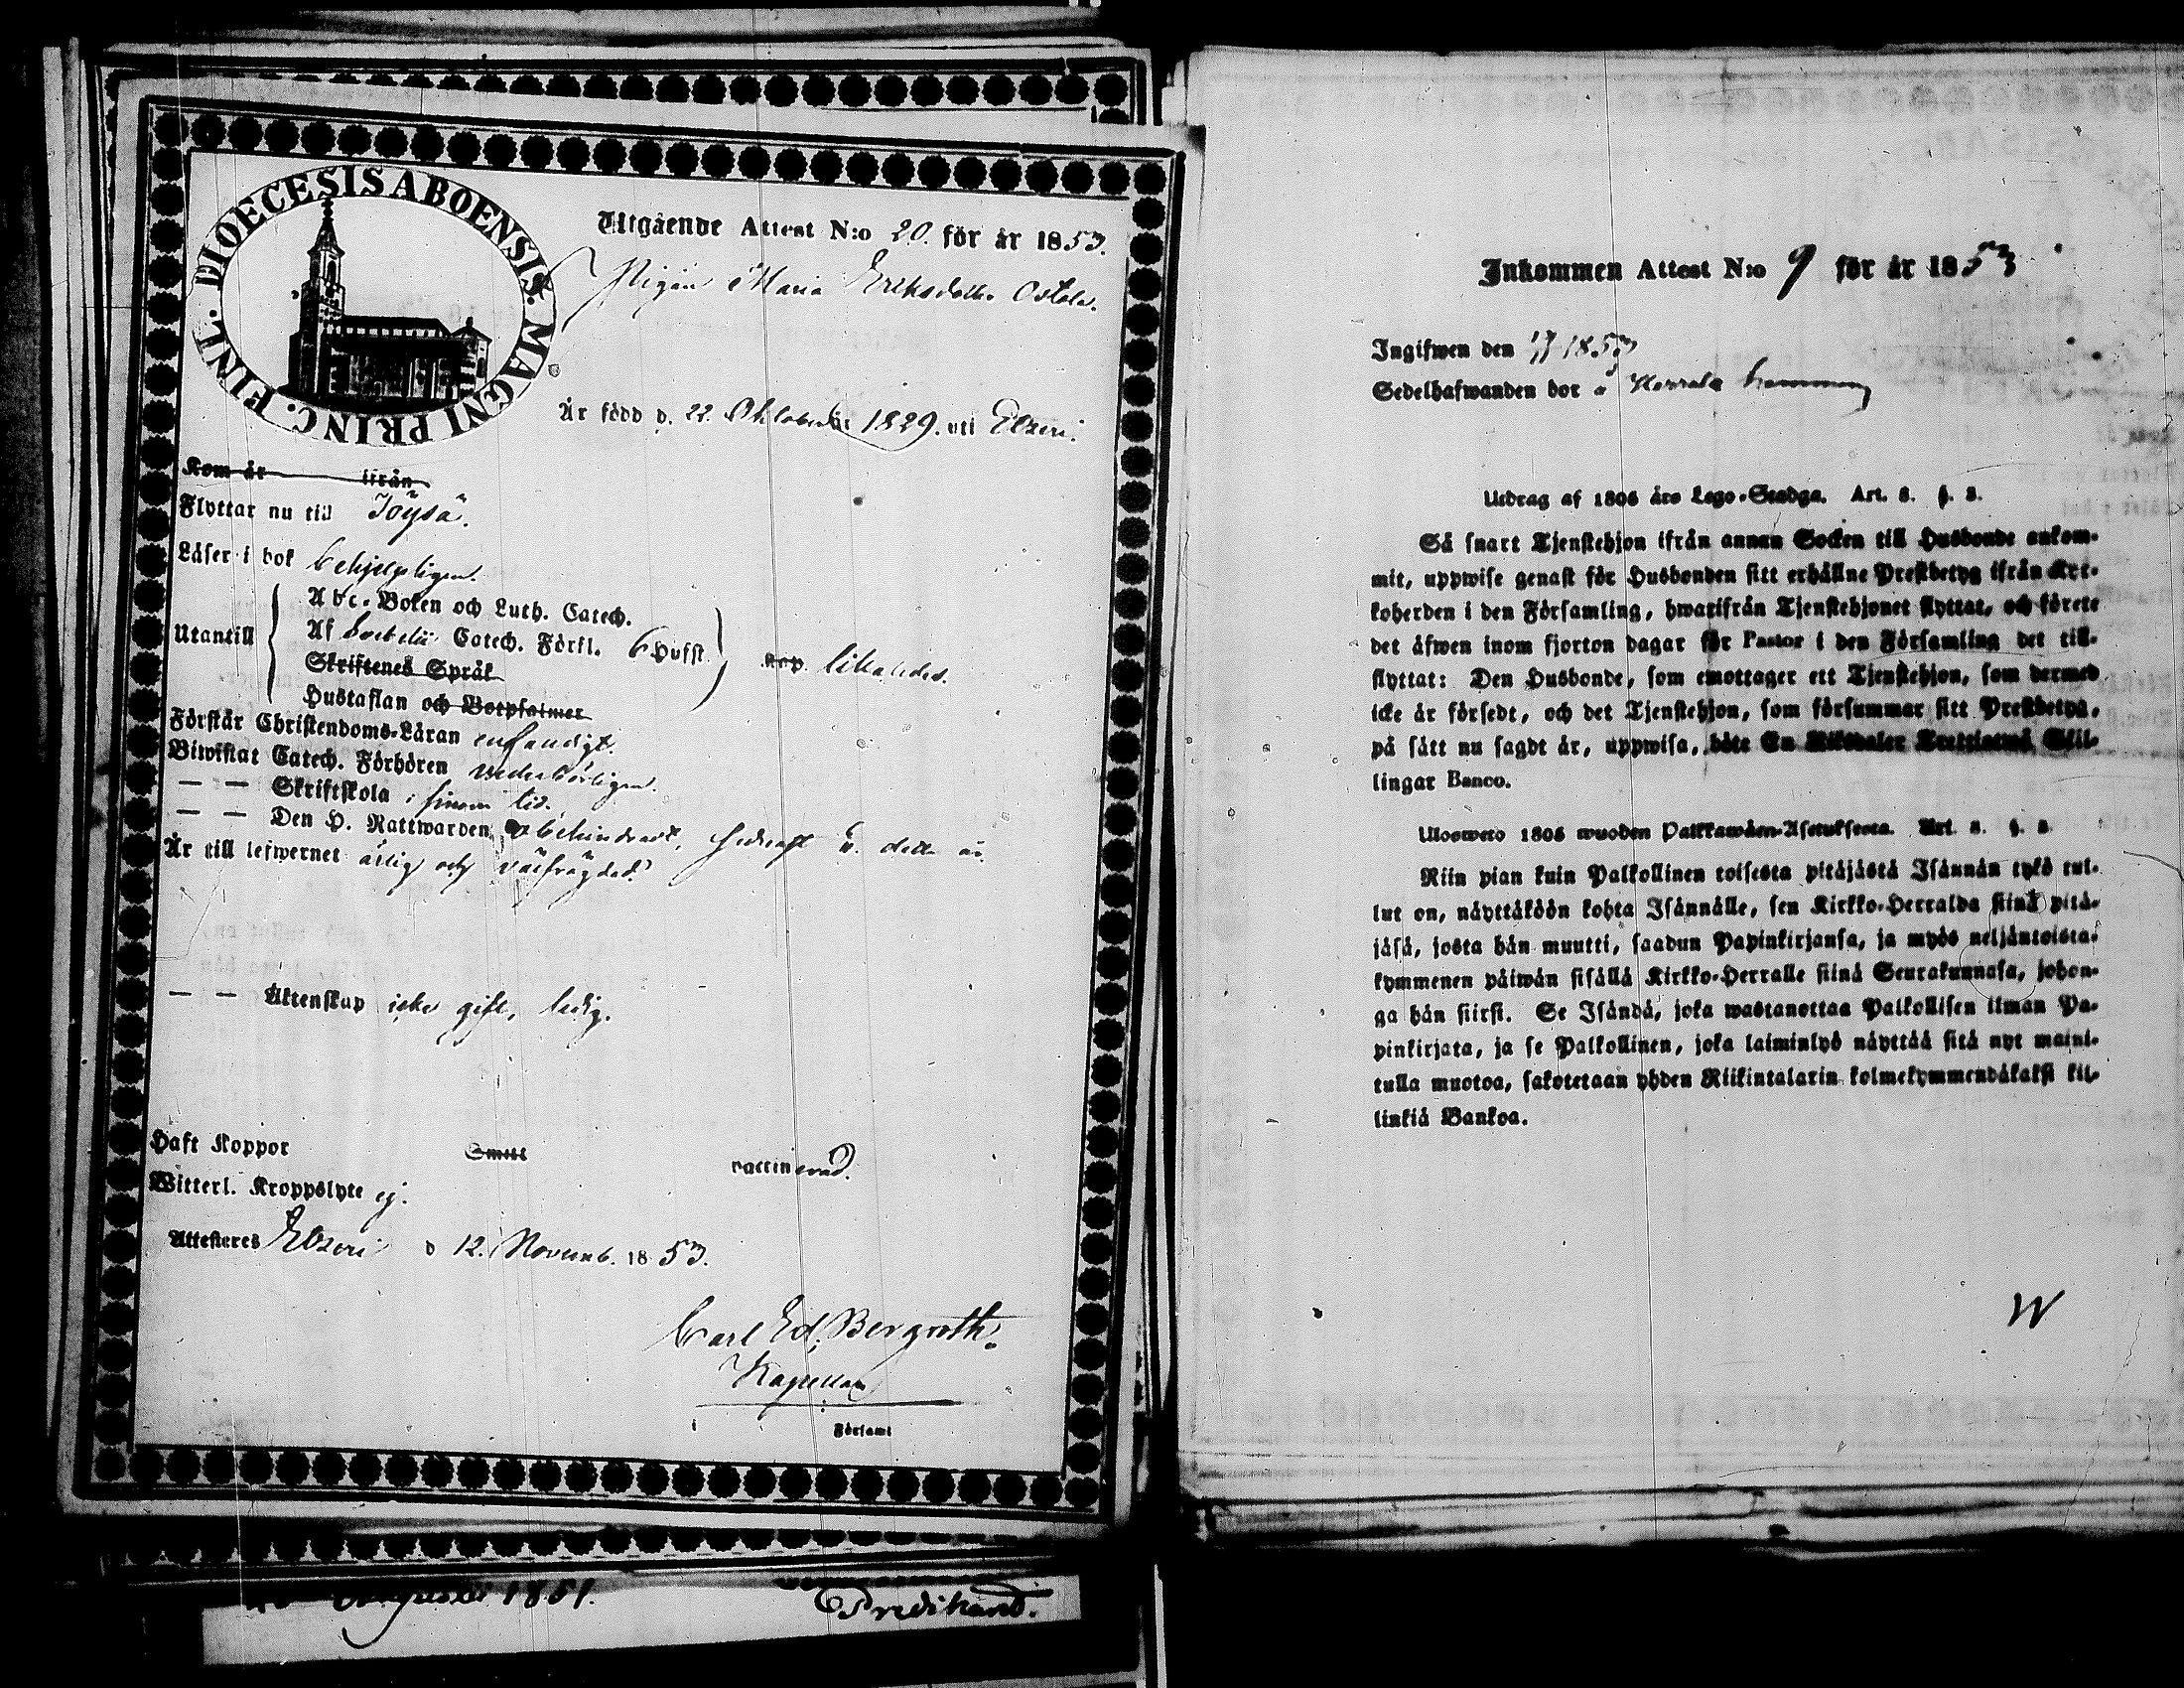 DIOECESIS ABOENSIS. MAGNI PRINC. FINL.
Utgående Attest N:o 20. för år 1853.
Pigan Maria Eriksdotter Ostola.
Är född d. 22. Oktober år 1829. uti Etseri.
Kom år ifrån
Flyttar nu till Töysä.
Läser i bok behjelpligen.
Utantill
Abc-Boken och Luth. Catech.
Af Svebelii Catech. Förkl. 6 Hufst.
Skriftenes Språk
Hustaflan och Botpsalmer
kap. likaledes.
Förstår Christendoms-Läran enfaldigt.
Biwistat Catech. Förhören vederbörligen.
— — Skriftskola i sinom tid.
— — Den H. Nattwarden obehindradt, sednast i detta år.
Är till lefwernet ärlig och välfrägdad.
— — Äktenskap icke gift, ledig.
Haft Koppor Smitt vaccinerad.
Witterl. Kroppslyte ej.
Attesteras Etseri d 12. Novemb. 1853.
Carl Ed. Bergroth.
Kapellan
i Församl
Augusti 1851.
Predikand.
Inkommen Attest N:o 9 för år 1853
Ingifwen den 1853
Sedelhafwanden bor å hemman
Utdrag af 1805 års Lego-Stadga. Art. 8. §. 3.
Så snart Tjenstehjon ifrån annan Socken till Husbonde ankom-
mit, uppwise genast för Husbonden sitt erhållne Prestbetyg ifrån Kyr-
koherden i den Församling, hwarifrån Tjenstehjonet flyttat, och förete
det äfwen inom fjorton dagar för Pastor i den Församling det till-
flyttat: Den Husbonde, som emottager ett Tjenstehjon, som dermed
icke är försedt, och det Tjenstehjon, som försummar sitt Prestbetyg,
på sätt nu sagdt är, uppwisa, böte En Riksdaler Trettiotwå Skil-
lingar Banco.
Ulosweto 1805 wuoden Palkkawäen-Asetuksesta. Art. 8. §. 3.
Niin pian kuin Palkollinen toisesta pitäjästä Isännän tykö tul-
lut on, näyttäköön kohta Isännälle, sen Kirkko-Herralda siinä pitä-
jäsä, josta hän muutti, saadun Papinkirjansa, ja myös neljäntoista-
kymmenen päiwän sisällä Kirkko-Herralle siinä Seurakunnasa, johon-
ga hän siirsi. Se Isändä, joka wastanottaa Palkollisen ilman Pa-
pinkirjata, ja se Palkollinen, joka laiminlyö näyttää sitä nyt maini-
tulla muotoa, sakotetaan yhden Riikintalarin kolmekymmendäkaksi kil-
linkiä Bankoa.
W